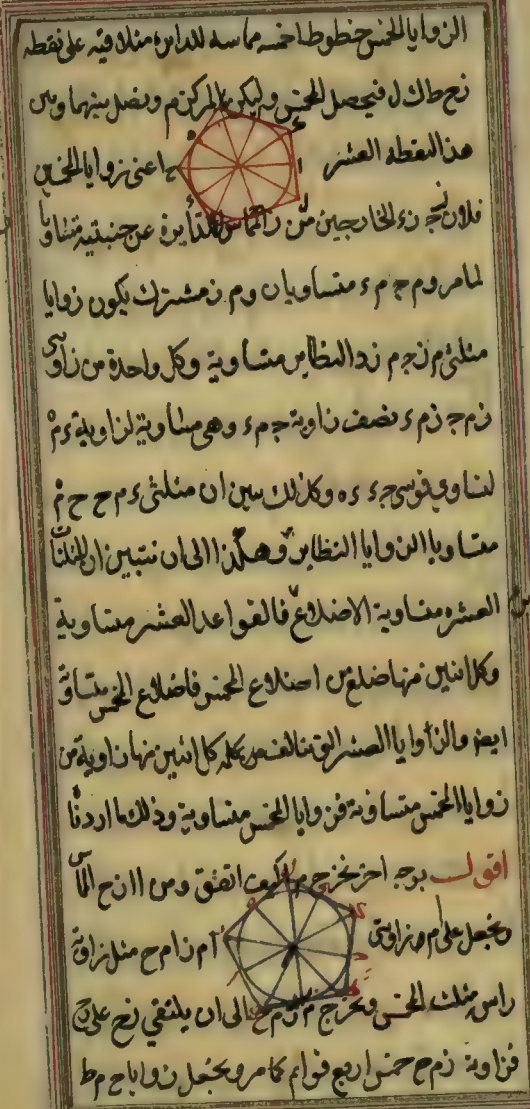 الزوايا الخمس خطوطا خمسه مماسه للدايرة متلاقيه على نقطه
زح ط ك ل فيحصل المخمس وليكن المركز م ونصل بينها وبين
هذه النقطه العشر اعنى زوايا المخمسين
فلان زج زء الخارجين من ز المماسين للدايرة عن جنبتيه متساويا
لما مر وم ج م ء متساويان وم ز مشترك يكون زوايا
مثلثى م ز ج م ز د النظاير متساوية وكل واحدة من زاويتى
ز م ج ز م ء نصف زاوية ج م ء وهى مساوية لزاوية ء م ه
لتساوى قوسى ج ء ء ه وكذلك نبين ان مثلثى ء م ح ح م ه
متساويا الزوايا النظاير وهكذا الى ان نتبين ان المثلثات
العشرة متساوية الاضلاع فالقواعد العشر متساوية
وكل اثنين منها ضلع من اضلاع المخمس فاضلاع المخمس متساوية
ايضا والزوايا العشر التى كل اثنين منها زاوية من
زوايا المخمس متساوية فزوايا المخمس متساوية وذلك ما اردنا
اقول بوجه اخر نخرج م ا كيف اتفق ومن ا ا ز ح المماس
ونجعل على ا م م زاويتى ا م ز ا م ح مثل زاوية
راس مثلث المخمس ونخرج م ز م ح الى ان يلتقى ز ح على ز ح
فزاوية ز م ح خمس اربع قوائم كما مر ونجعل زوايا ح م ط